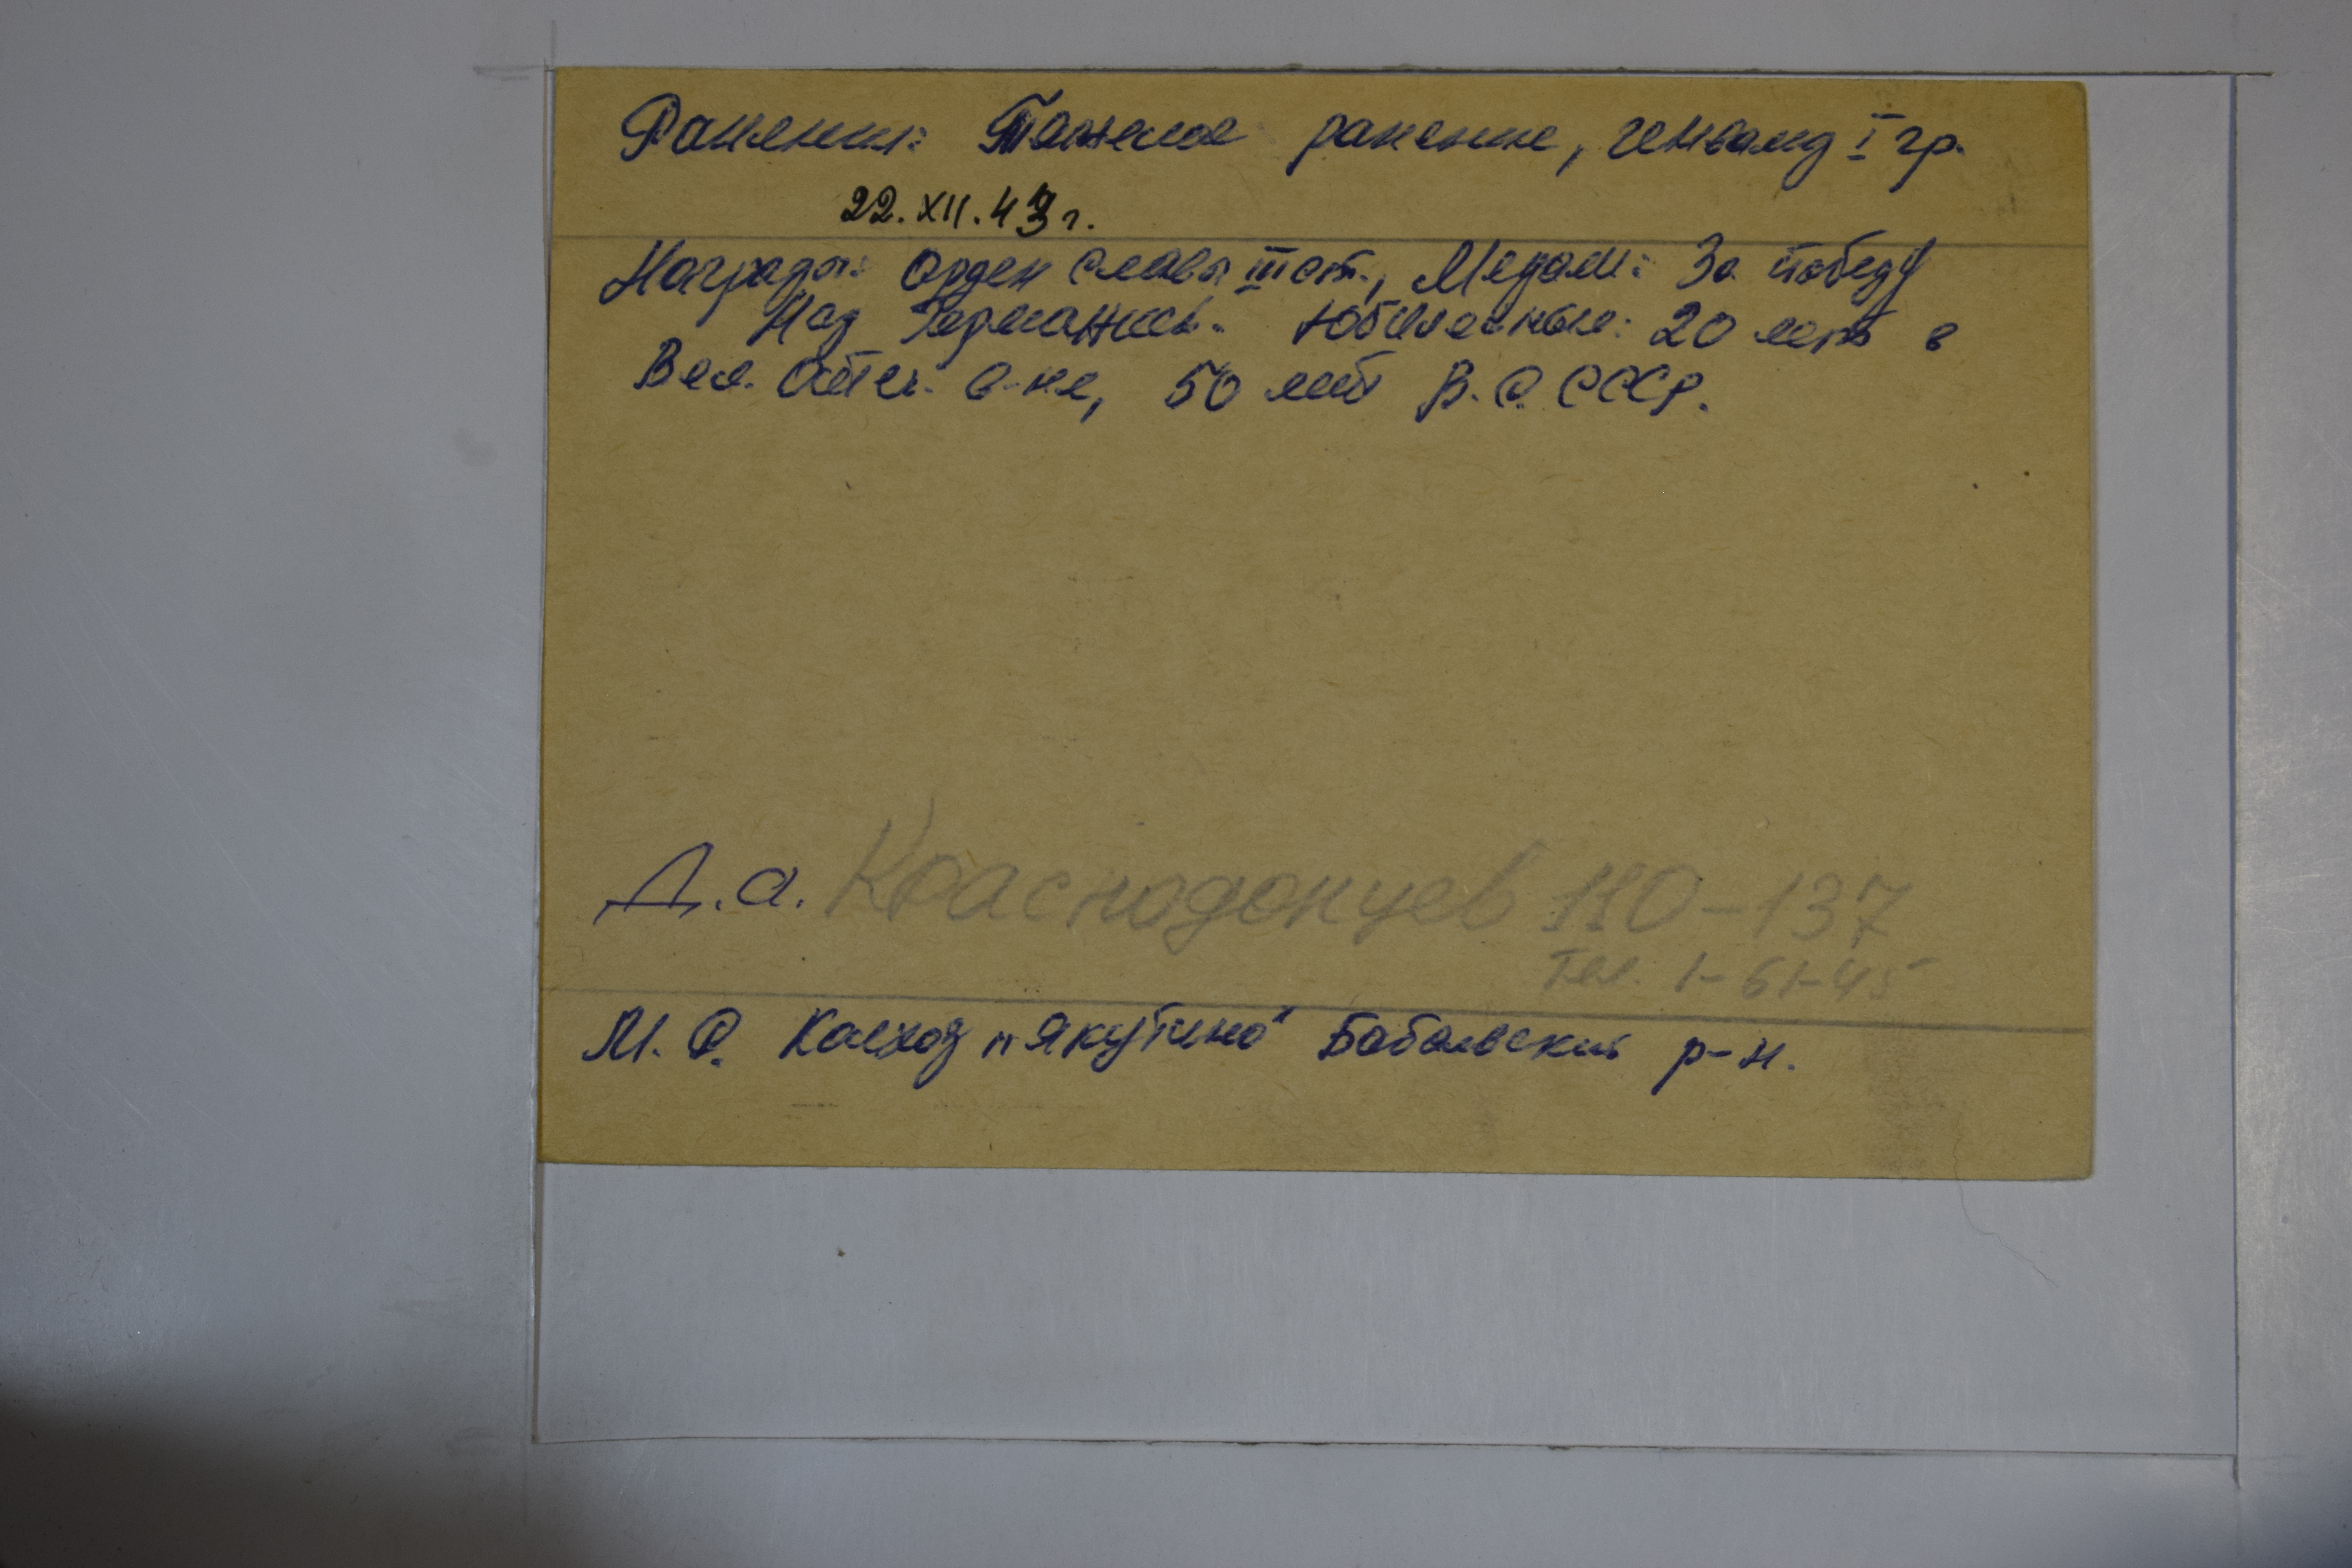 Ранения: Тяжелое ранение, инвалид I гр.
22.XII.43 г.
Награды: Орден Славы III ст., Медали: За победу
Над Германией. Юбилейные: 20 лет в
Вел. Отеч. в-не, 50 лет В.С. СССР.
Д.а. Краснодонцев 110-137
Тел. 1-61-45
М.Р. Колхоз „Якутино" Бабаевский р-н.